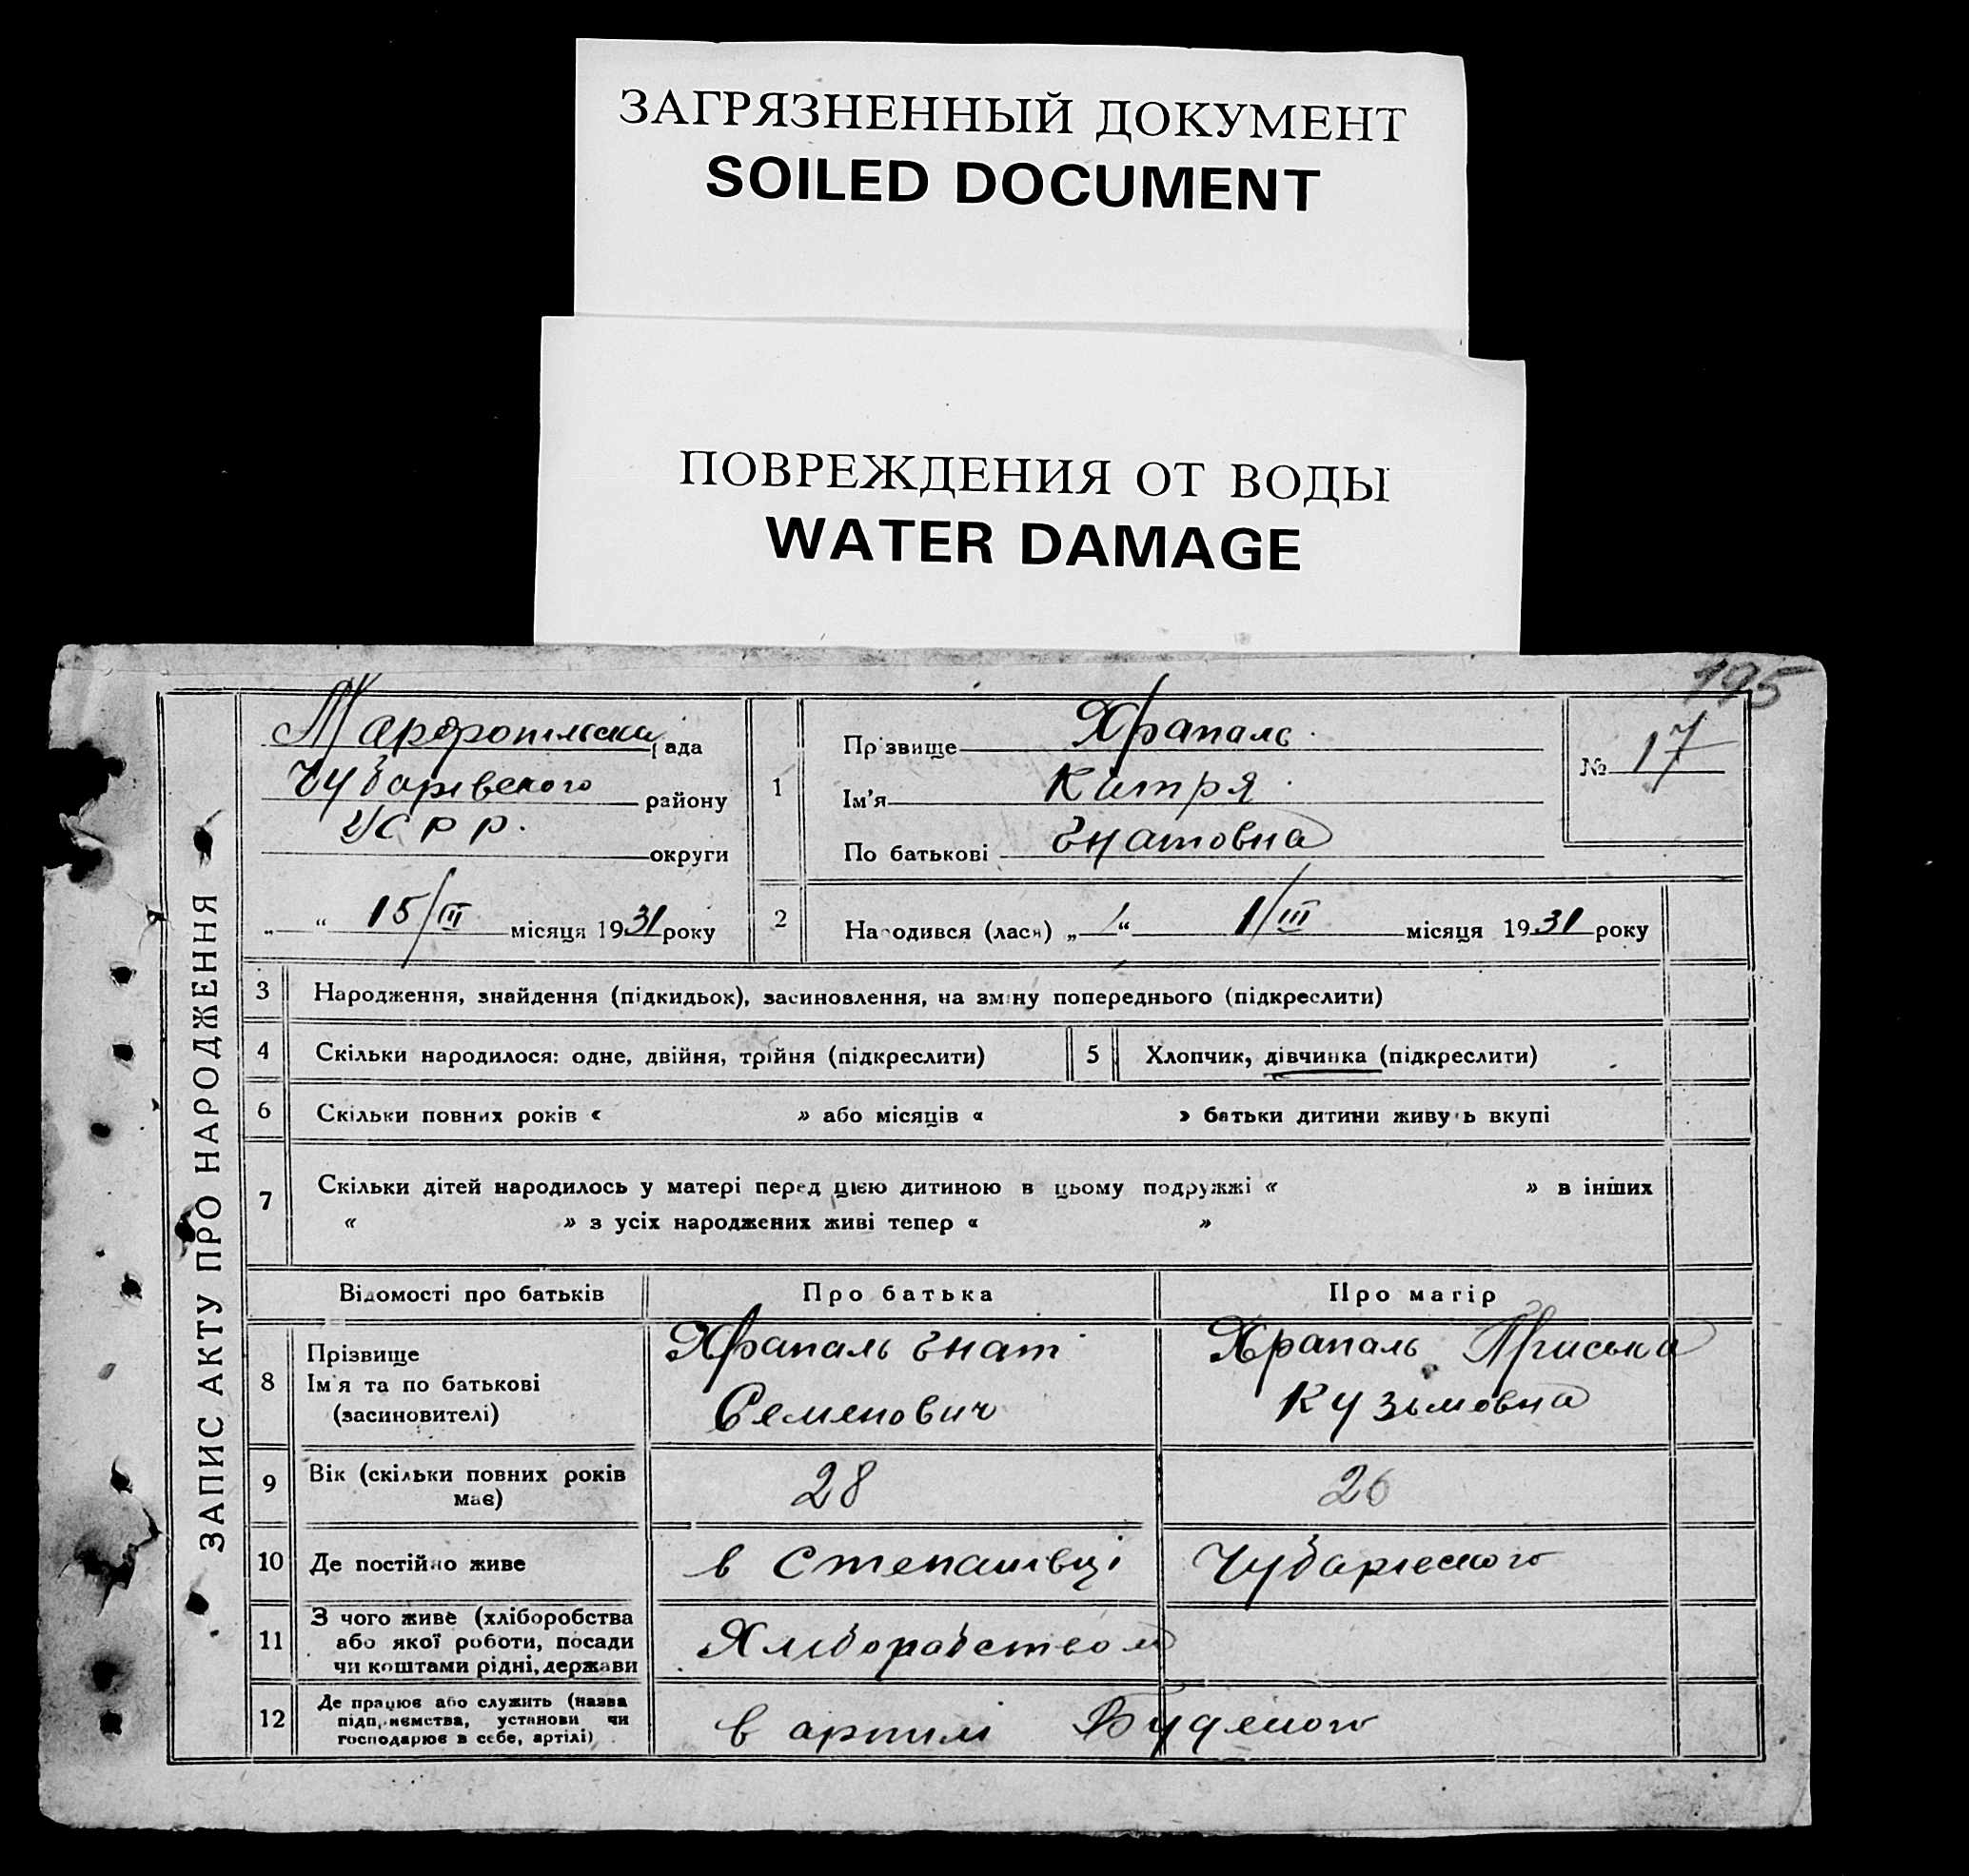 ЗАГРЯЗНЕННЫЙ ДОКУМЕНТ
SOILED DOCUMENT
ПОВРЕЖДЕНИЯ ОТ ВОДЫ
WATER DAMAGE
195
ЗАПИС АКТУ ПРО НАРОДЖЕННЯ
Марфопільська рада
Чубарівського району
УСРР. округи
„ “ 15/III місяця 1931 року
1
Прізвище Храпаль
Ім'я Катря
По батькові Гнатовна
№ 17
2 Народився (лася) „ 1 “ 1/III місяця 1931 року
3 Народження, знайдення (підкидьок), засиновлення, на зміну попереднього (підкреслити)
4 Скільки народилося: одне, двійня, трійня (підкреслити) 5 Хлопчик, дівчинка (підкреслити)
6 Скільки повних років « » або місяців « » батьки дитини живуть вкупі
7 Скільки дітей народилось у матері перед цією дитиною в цьому подружжі « » в інших
« » з усіх народжених живі тепер « »
Відомості про батьків Про батька Про матір
8 Прізвище
Ім'я та по батькові
(засиновителі)
Храпаль Гнат
Семенович
Храпаль Приська
Кузьмовна
9 Вік (скільки повних років
має)
28 26
10 Де постійно живе в Степанівці Чубарівського
11 З чого живе (хліборобства
або якої роботи, посади
чи коштами рідні, держави
Хліборобством
12 Де працює або служить (назва
підприємства, установи чи
господарює в себе, артілі)
в артілі Буденого